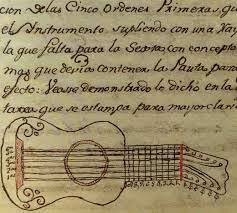 cion de las Cinco Ordenes Primeras, qu
el Instrumento, supliendo con una Ray
la que falta para la Sexta; con concepto
mas que devia contener la Pauta, para
efecto: Vease demonstrado lo dicho en la
tarea que se estampa para mayor clari